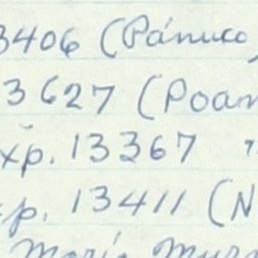 3406 (Pánuco
3627 (Poan
xp. 13367 "
xp. 13411 (N
María Mur